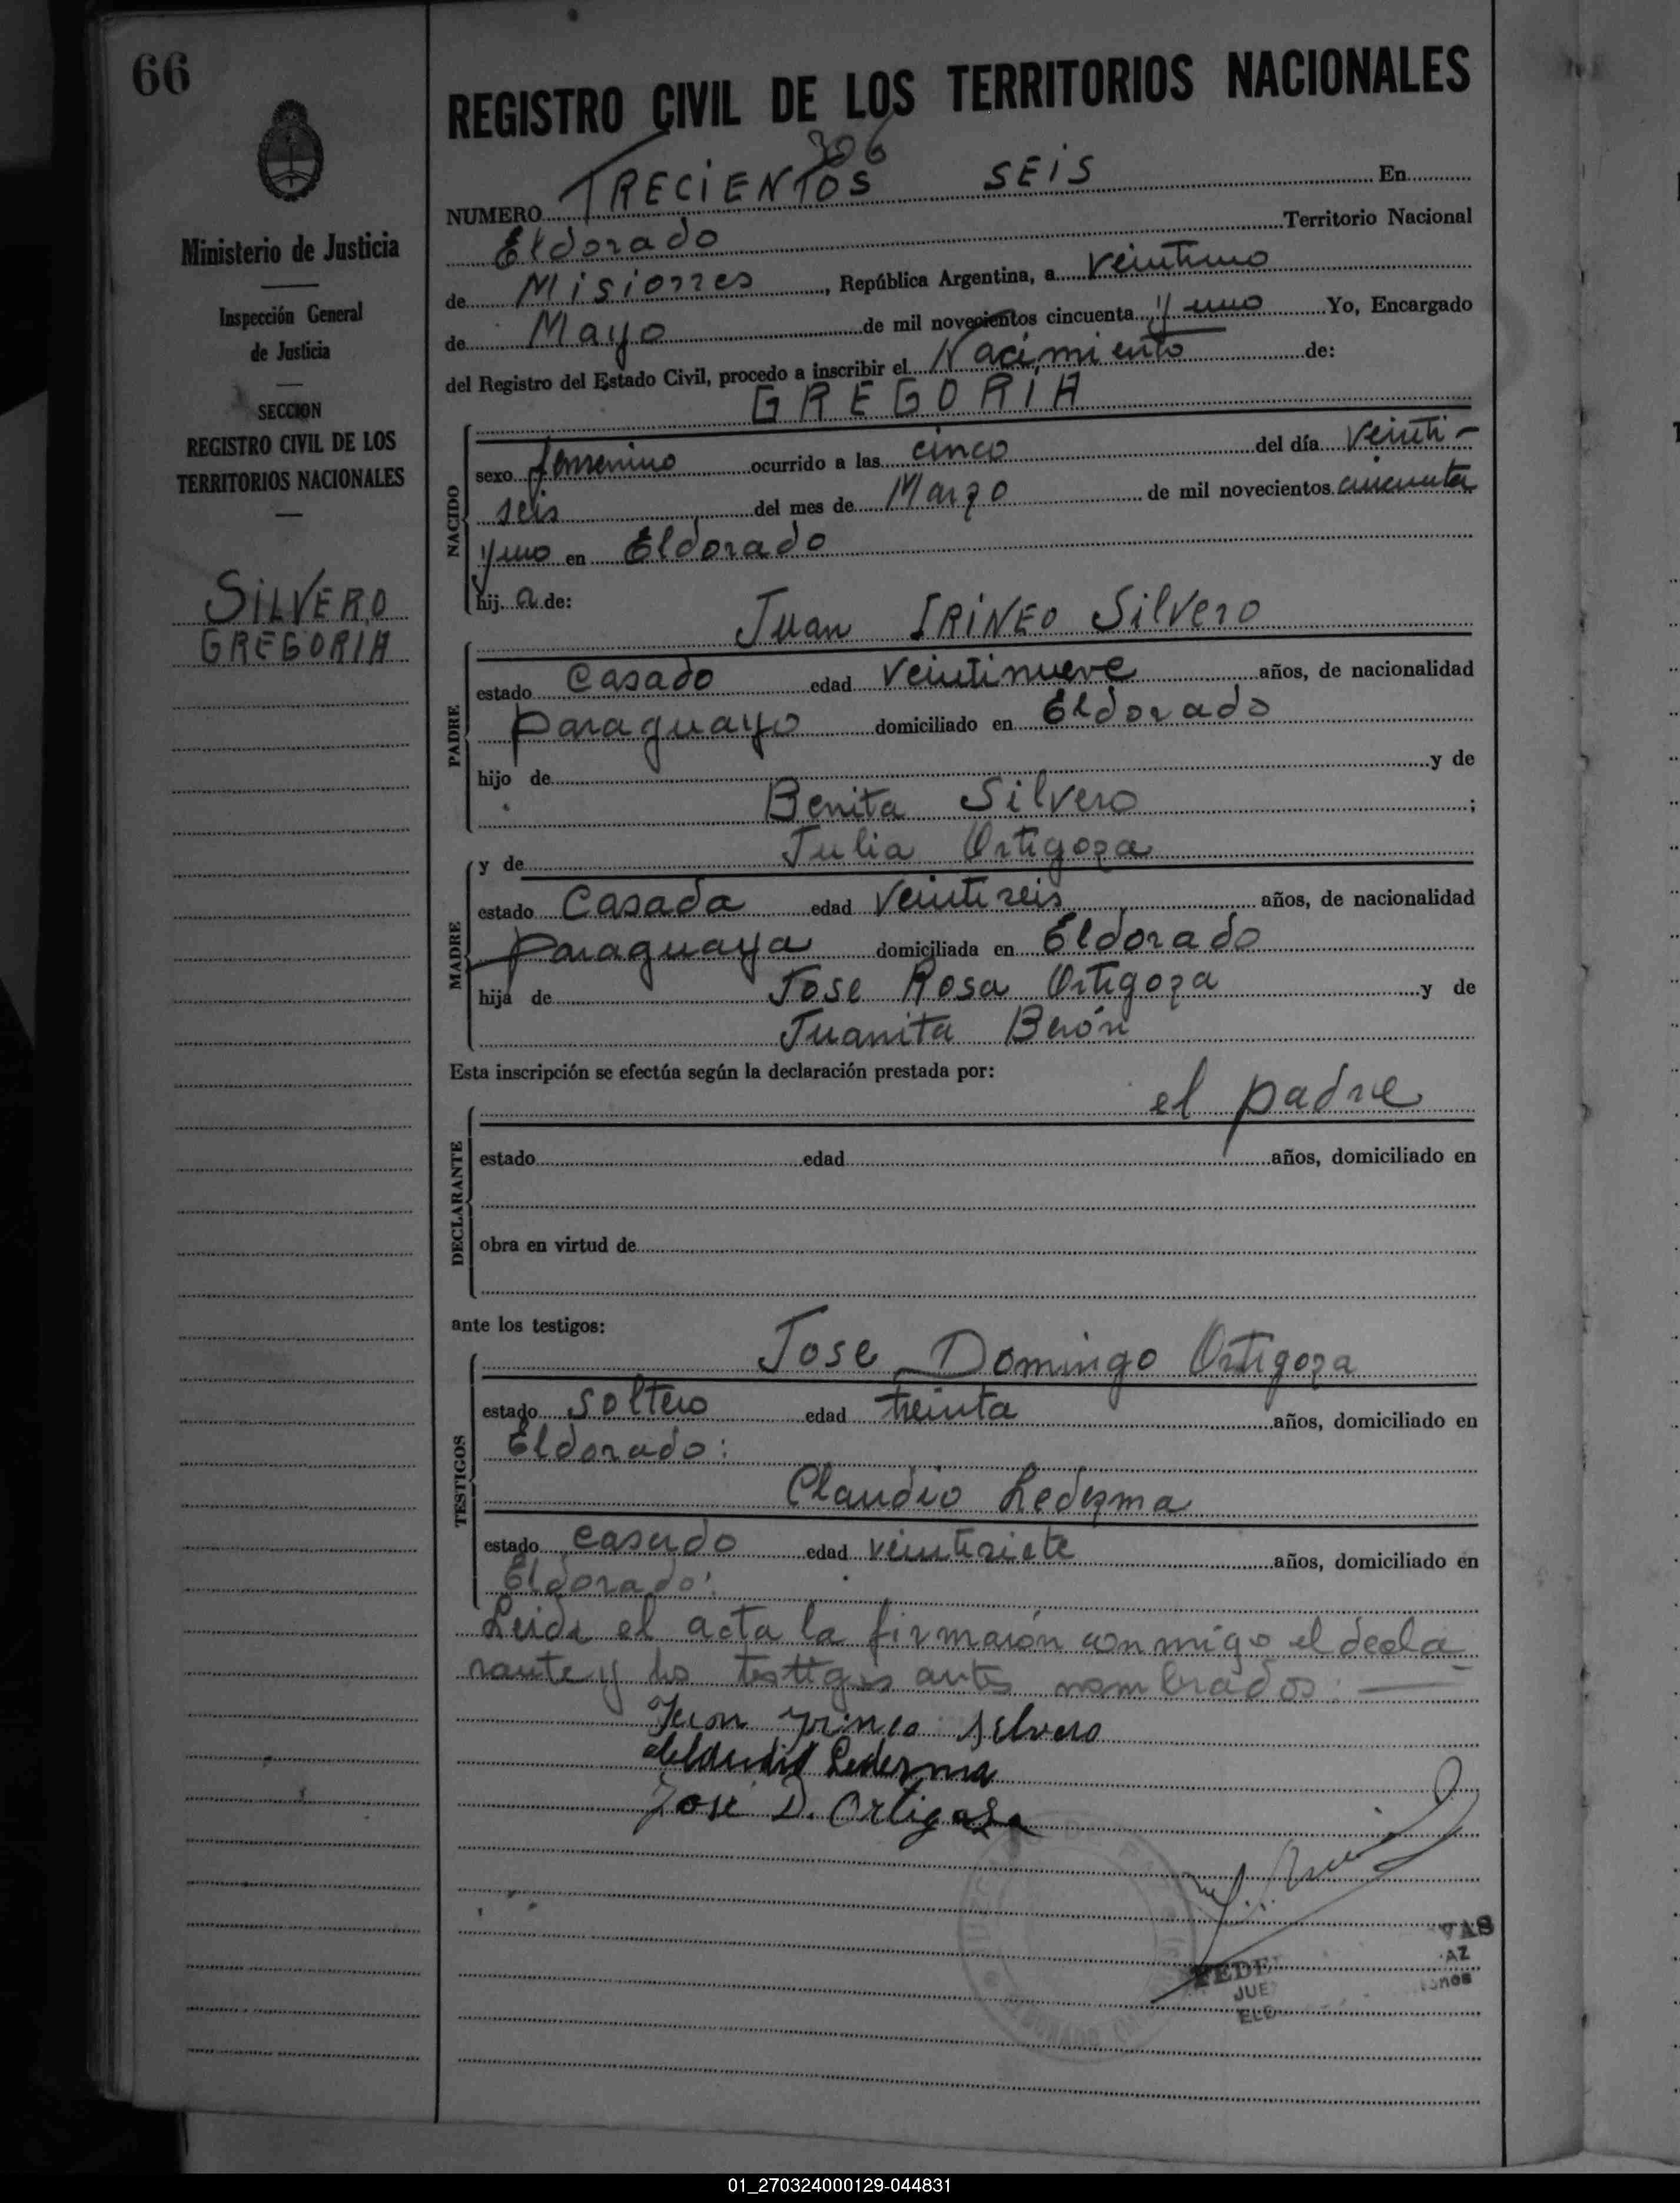 66
Ministerio de Justicia
Inspección General
de Justicia
SECCION
REGISTRO CIVIL DE LOS
TERRITORIOS NACIONALES
SILVERO
GREGORIA
REGISTRO CIVIL DE LOS TERRITORIOS NACIONALES
306
NUMERO TRECIENTOS SEIS En
Eldorado Territorio Nacional
de Misiones, República Argentina, a veintiuno
de Mayo de mil novecientos cincuenta y uno Yo, Encargado
del Registro del Estado Civil, procedo a inscribir el Nacimiento de:
GREGORIA
NACIDO
sexo femenino ocurrido a las cinco del día veinti-
seis del mes de Marzo de mil novecientos cincuenta
y uno en Eldorado
hij a de:
Juan IRINEO Silvero
PADRE
estado Casado edad veintinueve años, de nacionalidad
paraguayo domiciliado en Eldorado
hijo de y de
Benita Silvero ;
y de Julia Ortigoza
MADRE
estado Casada edad veintiseis años, de nacionalidad
paraguaya domiciliada en Eldorado
hija de Jose Rosa Ortigoza y de
Juanita Berón
Esta inscripción se efectúa según la declaración prestada por:
el padre
DECLARANTE
estado edad años, domiciliado en
obra en virtud de
ante los testigos:
Jose Domingo Ortigoza
TESTIGOS
estado soltero edad treinta años, domiciliado en
Eldorado:
Claudio Ledezma
estado casado edad veintisiete años, domiciliado en
Eldorado:
Leida el acta la firmarón conmigo el decla
rante y los testigos antes nombrados:
Juan Yrineo Silvero
Claudio Ledezma
José D. Ortigoza
01_270324000129-044831